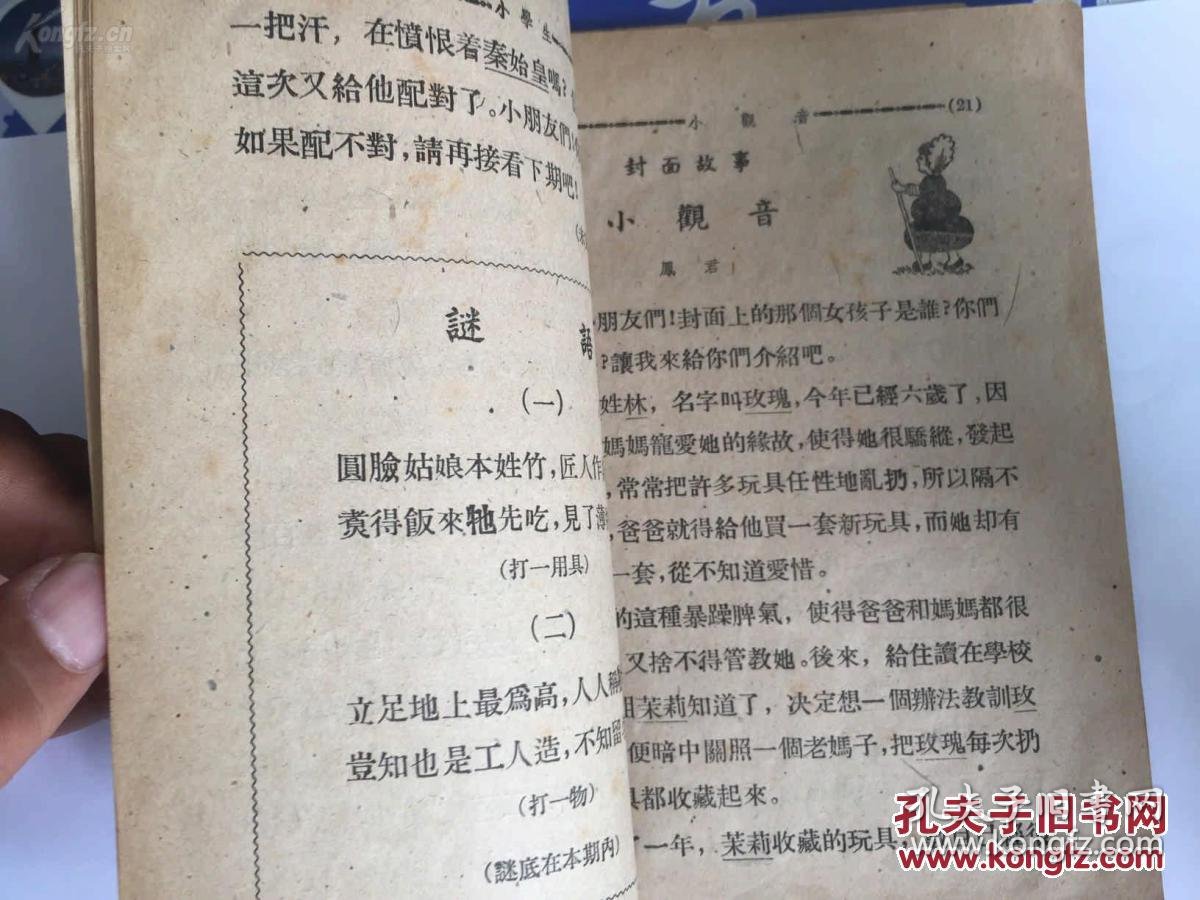 小學生
一把汗，在憤恨着秦始皇嗎？
這次又給他配對了。小朋友們！
如果配不對，請再接看下期吧！
謎語
(一)
圓臉姑娘本姓竹，匠人作
煑得飯來牠先吃，見了薄
(打一用具)
(二)
立足地上最爲高，人人稱
豈知也是工人造，不知留
(打一物)
(謎底在本期內)
小觀音 (21)
封面故事
小觀音
鳳君
朋友們！封面上的那個女孩子是誰？你們
？讓我來給你們介紹吧。
姓林，名字叫玫瑰，今年已經六歲了，因
媽媽寵愛她的緣故，使得她很驕縱，發起
，常常把許多玩具任性地亂扔，所以隔不
，爸爸就得給他買一套新玩具，而她却有
一套，從不知道愛惜。
的這種暴躁脾氣，使得爸爸和媽媽都很
又捨不得管教她。後來，給住讀在學校
茉莉知道了，決定想一個辦法教訓玫
便暗中關照一個老媽子，把玫瑰每次扔
具都收藏起來。
了一年，茉莉收藏的玩具，
Kongfz.com
孔夫子旧书网
孔夫子旧书网
www.kongfz.com